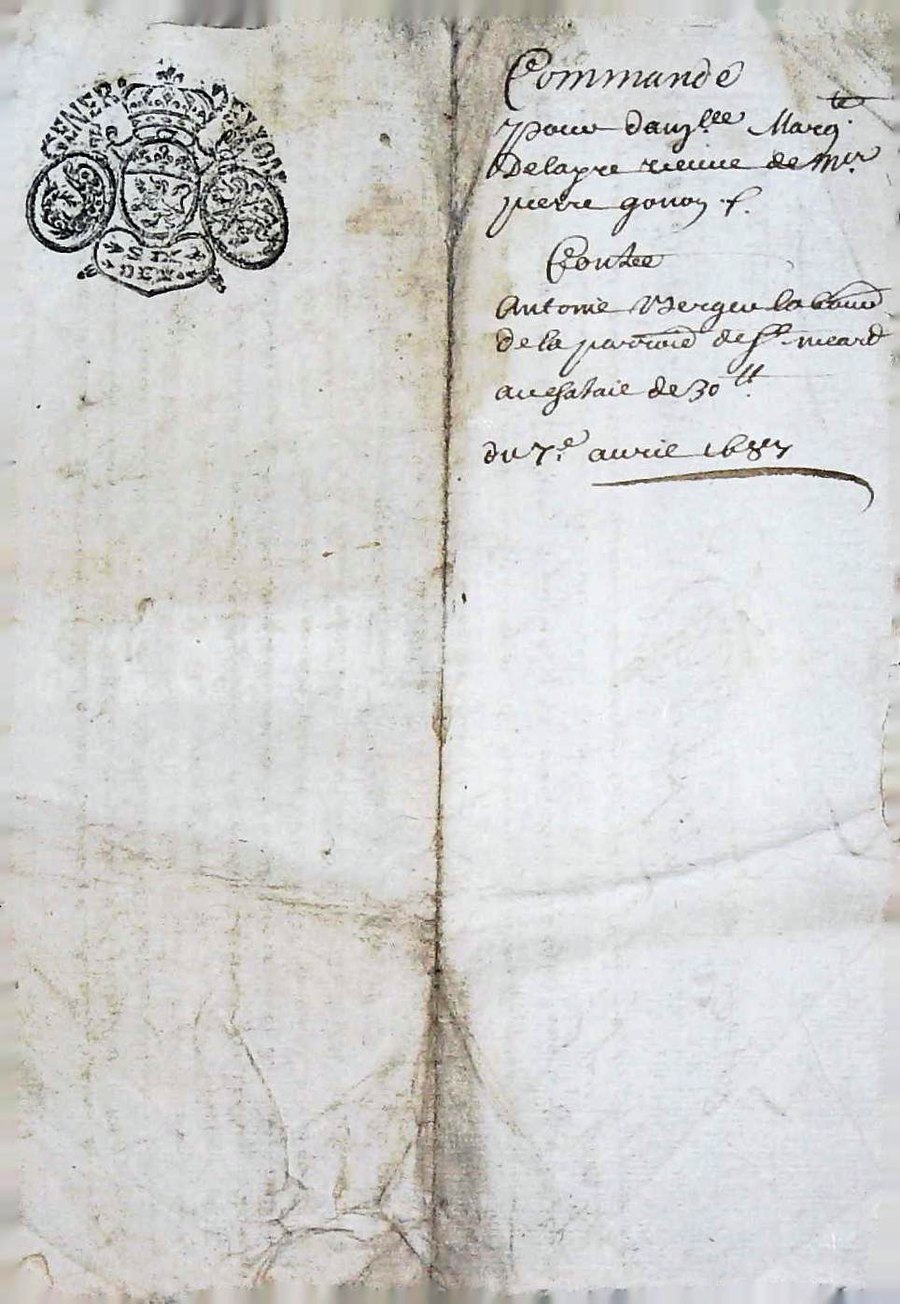 GENER DE LYON
SIX
DEN
Commande
pour dam.lle Marg.te
Delapre veuve de mr.
pierre gonon f.
Contre
Antoine Vergue
de la parroisse de St. meard
au chataie de 30 tt.
du 7.e avril 1687